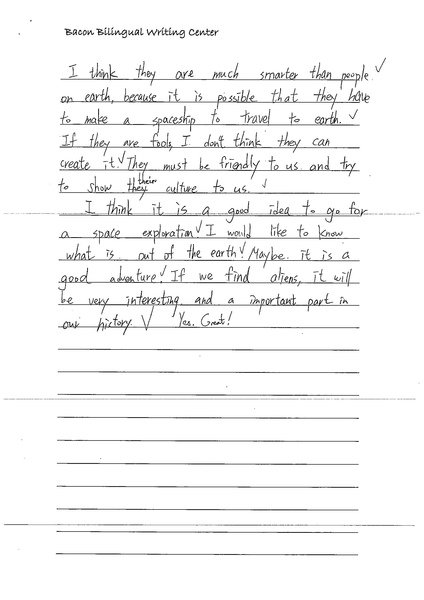 Bacon Bilingual Writing Center
I think they are much smarter than people ✓
on earth, because it is possible that they have
to make a spaceship to travel to earth. ✓
If they are fools, I don't think they can
create it. ✓ They must be friendly to us and try
to show they their culture to us. ✓
I think it is a good idea to go for
a space exploration. ✓ I would like to know
what is out of the earth. ✓ Maybe. it is a
good adventure. ✓ If we find aliens, it will
be very interesting and a important part in
our history. ✓ Yes. Great!